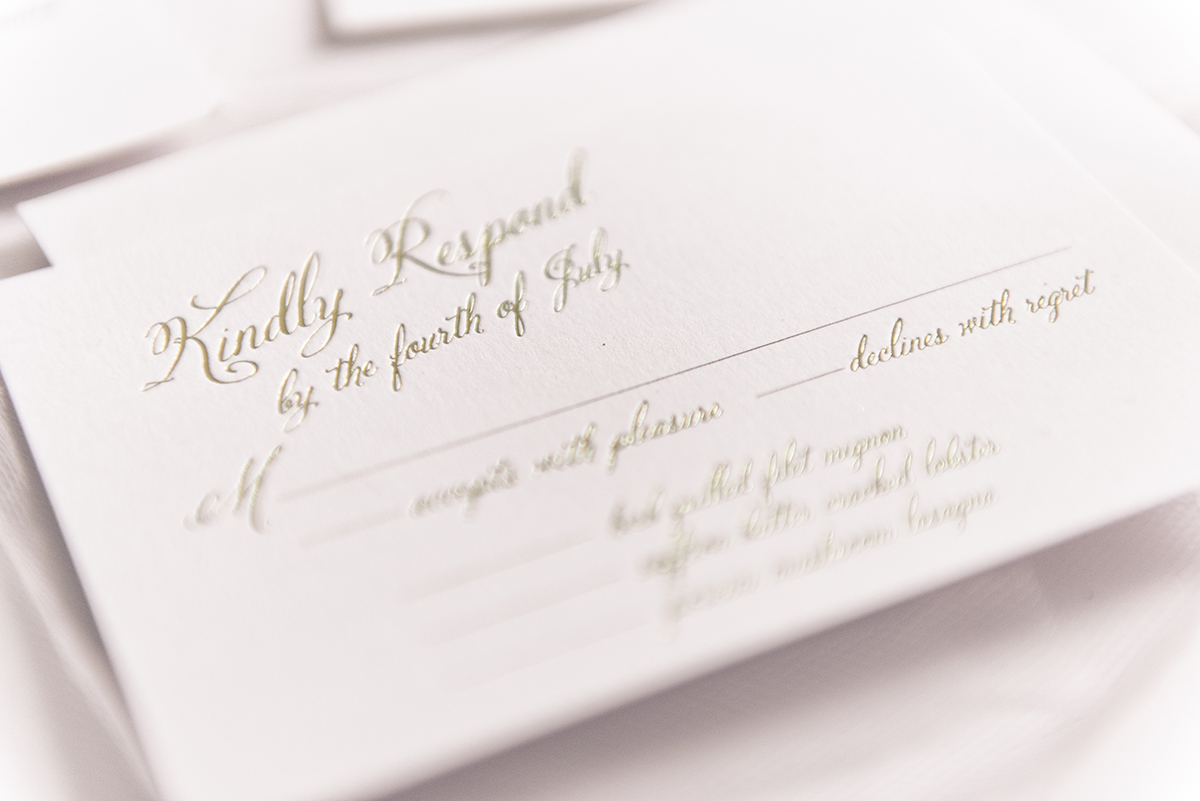 Kindly Respond
by the fourth of July
M
accepts with pleasure declines with regret
grilled filet mignon
butter cracked lobster
mushroom lasagna